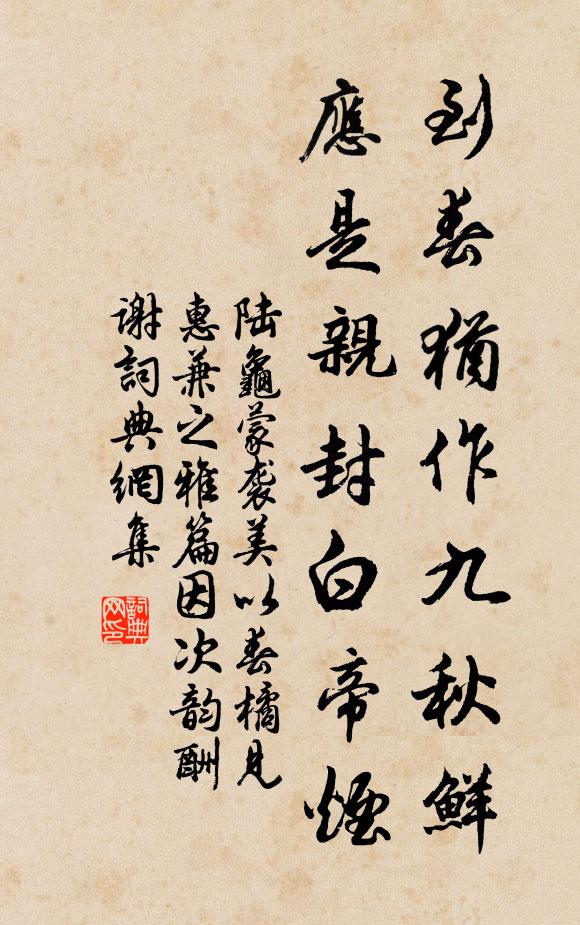 到春猶作九秋鮮
應是親封白帝煙
陆龜蒙袭美以春橘見
惠兼之雅篇因次韵酬
谢詞典網集
詞典
网印